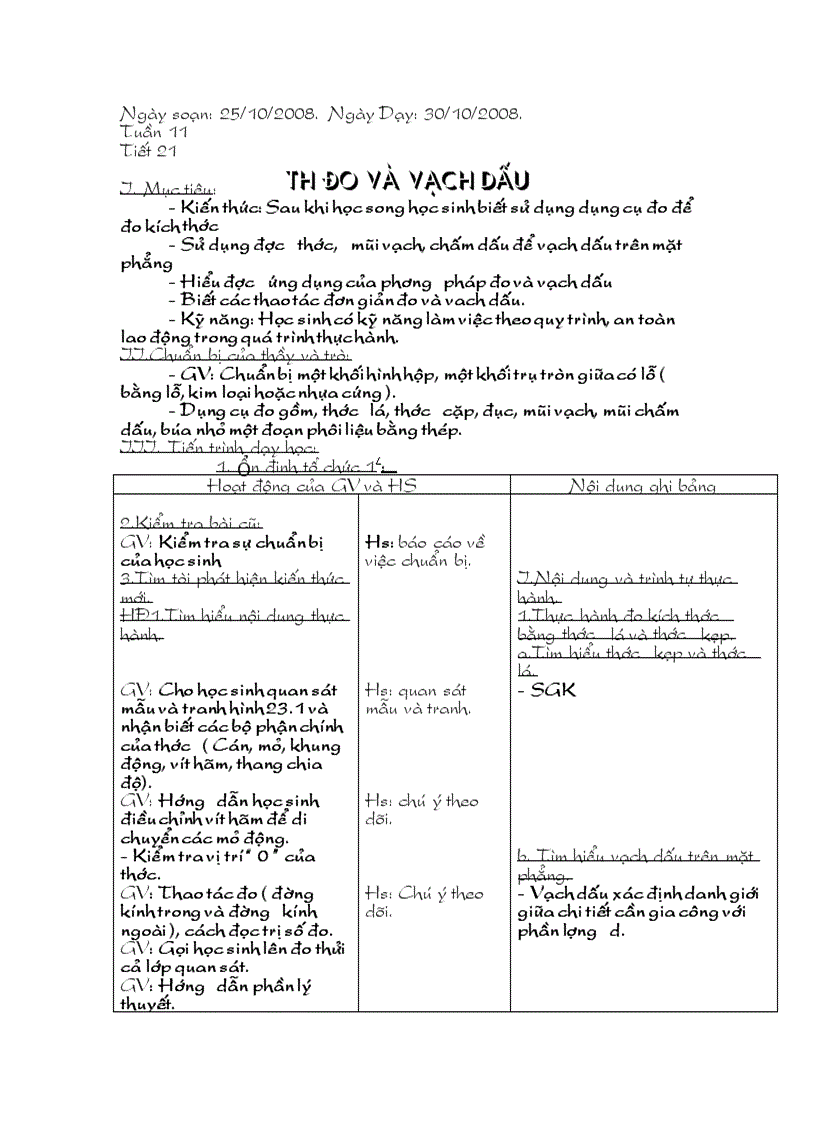 Ngày soạn: 25/10/2008. Ngày Dạy: 30/10/2008.
Tuần 11
Tiết 21
TH ĐO VÀ VẠCH DẤU
I. Mục tiêu:
- Kiến thức: Sau khi học song học sinh biết sử dụng dụng cụ đo để
đo kích thớc
- Sử dụng đợc thớc, mũi vạch, chấm dấu để vạch dấu trên mặt
phẳng
- Hiểu đợc ứng dụng của phơng pháp đo và vạch dấu
- Biết các thao tác đơn giản đo và vach dấu.
- Kỹ năng: Học sinh có kỹ năng làm việc theo quy trình, an toàn
lao động trong quá trình thực hành.
II.Chuẩn bị của thầy và trò:
- GV: Chuẩn bị một khối hình hộp, một khối trụ tròn giữa có lỗ (
bằng lỗ, kim loại hoặc nhựa cứng ).
- Dụng cụ đo gồm, thớc lá, thớc cặp, đục, mũi vạch, mũi chấm
dấu, búa nhỏ một đoạn phôi liệu bằng thép.
III. Tiến trình dạy học:
1. Ổn định tổ chức 1/:
Hoạt động của GV và HS
Nội dung ghi bảng
2.Kiểm tra bài cũ:
GV: Kiểm tra sự chuẩn bị
của học sinh
3.Tìm tòi phát hiện kiến thức
mới.
HĐ1.Tìm hiểu nội dung thực
hành.
GV: Cho học sinh quan sát
mẫu và tranh hình 23.1 và
nhận biết các bộ phận chính
của thớc ( Cán, mỏ, khung
động, vít hãm, thang chia
độ).
GV: Hớng dẫn học sinh
điều chỉnh vít hãm để di
chuyển các mỏ động.
- Kiểm tra vị trí " 0 " của
thớc.
GV: Thao tác đo ( đờng
kính trong và đờng kính
ngoài ), cách đọc trị số đo.
GV: Gọi học sinh lên đo thửi
cả lớp quan sát.
GV: Hớng dẫn phần lý
thuyết.
Hs: báo cáo về
việc chuẩn bị.
Hs: quan sát
mẫu và tranh.
Hs: chú ý theo
dõi.
Hs: Chú ý theo
dõi.
I.Nội dung và trình tự thực
hành.
1.Thực hành đo kích thớc
bằng thớc lá và thớc kẹp.
a.Tìm hiểu thớc kẹp và thớc
lá.
- SGK
b. Tìm hiểu vạch dấu trên mặt
phẳng.
- Vạch dấu xác định danh giới
giữa chi tiết cần gia công với
phần lợng d.